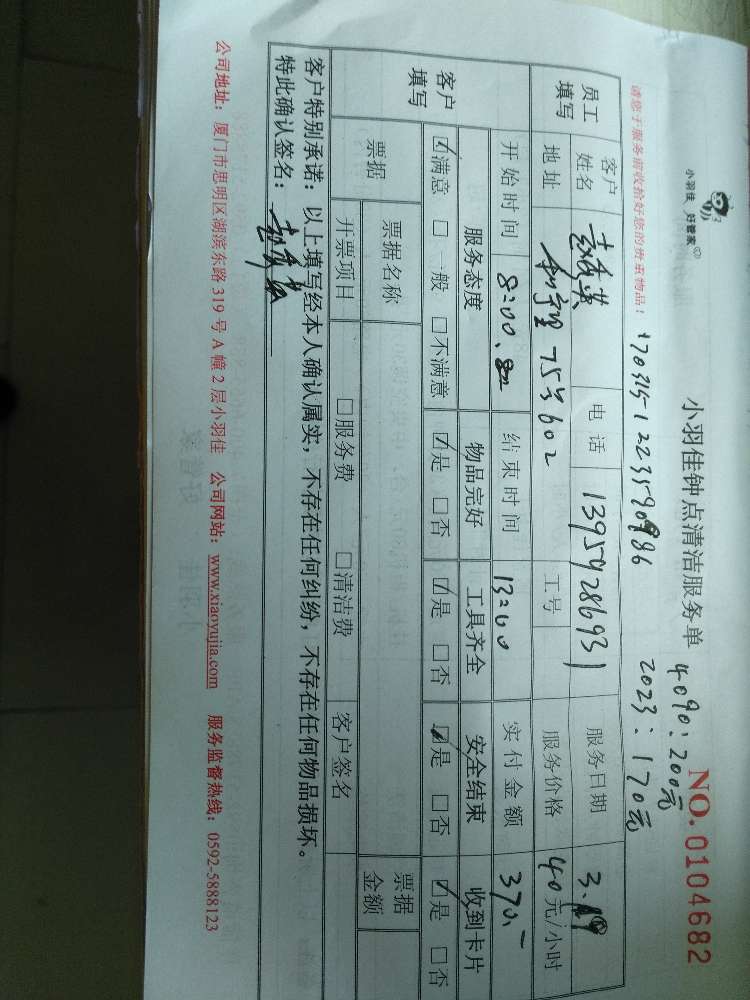 小羽佳 好管家
小羽佳钟点清洁服务单
NO. 0104682
4090：200元
2023：170元
请您于服务前收拾好您的贵重物品！
1703151223590986
员工填写 客户姓名 电话 13959286931 服务日期 3.19
地址 75号602 工号 服务价格 40元/小时
开始时间 8:00 结束时间 13:00 实付金额 370.-
客户填写 服务态度 物品完好 工具齐全 安全结束 收到卡片
☑满意 □一般 □不满意 ☑是 □否 ☑是 □否 ☑是 □否 ☑是 □否
票据 票据名称 票据金额
开票项目 □服务费 □清洁费 客户签名
客户特别承诺：以上填写经本人确认属实，不存在任何纠纷，不存在任何物品损坏。
特此确认签名：
公司地址：厦门市思明区湖滨东路319号A幢2层小羽佳 公司网站：www.xiaoyujia.com 服务监督热线：0592-5888123